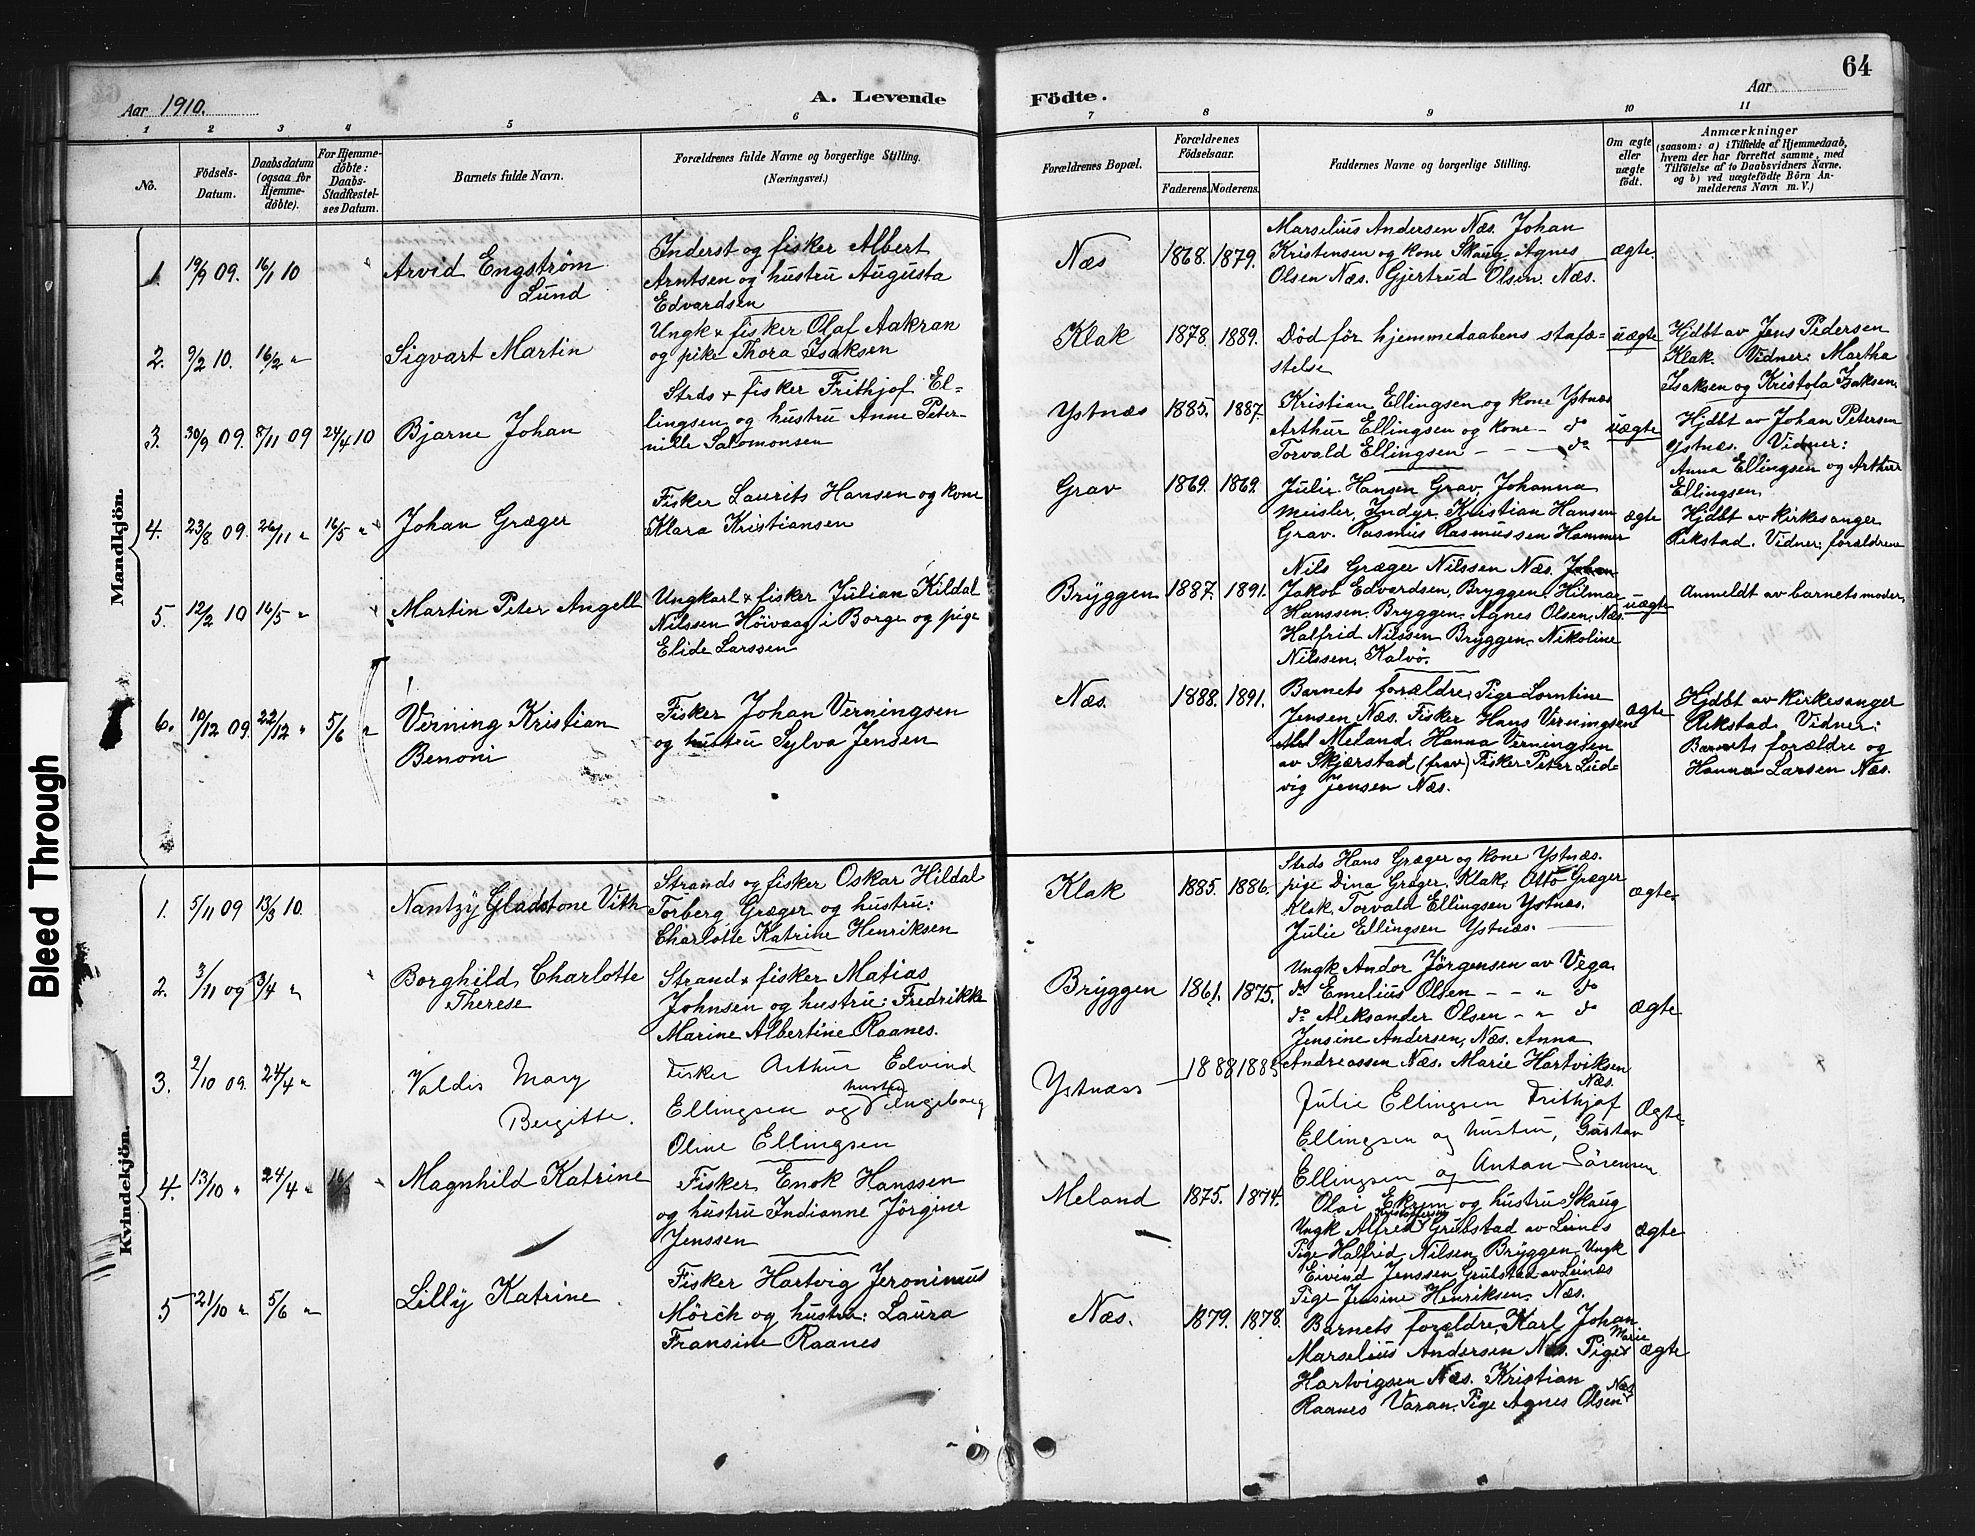 64
Aar 1910.
A. Levende Födte.
Aar
1 2 3 4 5 6 7 8 9 10 11
No.
Födsels-
Datum.
Daabsdatum
(ogsaa for
Hjemme-
döbte).
For Hjemme-
döbte:
Daabs-
Stadfæstel-
ses Datum.
Barnets fulde Navn.
Forældrenes fulde Navne og borgerlige Stilling.
(Næringsvei.)
Forældrenes Bopæl.
Forældrenes
Födselsaar.
Faderens. Moderens.
Faddernes Navne og borgerlige Stilling.
Om ægte
eller
uægte
födt.
Anmærkninger
(saasom: a) i Tilfælde af Hjemmedaab,
hvem der har forrettet samme, med
Tilföielse af to Daabsvidners Navne.
og b) ved uægtefödte Börn An-
melderens Navn m. V.)
Mandkjön.
1. 19/9 09. 16/1 10
Arvid Engström
Lund
Inderst og fisker Albert
Arntsen og hustru Augusta
Edvardsen
Næs 1868. 1879.
Marselius Andersen Næs. Johan
Kristensen og kone Skaug. Agnes
Olsen Næs. Gjertrud Olsen. Næs.
ægte.
2. 9/2 10. 16/2 "
Sigvart Martin
Ungk & fisker Olaf Aakran
og pike Thora Isaksen
Klak 1878. 1889.
Død før hjemmedaabens stafæ=
stelse
uægte
Hjdbt av Jens Pedersen
Klak. Vidner: Martha
Isaksen og Kristola Isaksen.
3. 30/9 09. 8/11 09 24/4 10
Bjarne Johan
Strds & fisker Frithjof El=
lingsen og hustru Anne Peter-
nille Salomonsen
Ystnæs 1885. 1887.
Kristian Ellingsen og kone Ystnæs
Arthur Ellingsen og kone - do
Torvald Ellingsen - - - do
uægte
Hjdbt av Johan Petersen
Ystnæs. Vidner:
Anna Ellingsen og Arthur
Ellingsen.
4. 23/8 09. 26/11 " 16/5 "
Johan Græger
Fisker Laurits Hansen og kone
Klara Kristiansen
Grav 1869. 1869.
Julie Hansen Grav, Johanna
Meisler, Indyr. Kristian Hansen
Grav. Rasmus Rasmussen Hammer
ægte
Hjdbt av kirkesanger
Rekstad. Vidner: forældrene
5. 12/2 10 16/5 "
Martin Peter Angell
Ungkarl & fisker Julian Kildal
Nilssen Höivaag i Borge og pige
Elide Larssen
Bryggen 1887. 1891.
Nils Græger Nilssen Næs. Johan
Jakob Edvardsen, Bryggen. Hilmar
Hanssen. Bryggen. Agnes Olsen. Næs.
Halfrid Nilssen Bryggen. Nikoline
Nilssen. Kalvö.
uægte
Anmeldt av barnets moder.
6. 10/12 09. 22/12 " 5/6 "
Verning Kristian
Benoni
Fisker Johan Verningsen
og hustru Sylva Jensen
Næs. 1888. 1891.
Barnets forældre, Pige Lorntine
Jensen Næs. Fisker Hans Verningsen
Meland. Hanna Verningsen
av Skjærstad (frav) Fisker Peter Lud=
vig Jensen Næs.
ægte
Hjdbt av kirkesanger
Rekstad. Vidner:
Barnets forældre og
Hanna Larsen Næs.
Kvindekjön.
1. 5/11 09 13/3 10.
Nantzy Gladstone Vith
Strands og fisker Oskar Hildal
Torberg Græger og hustru:
Charlotte Katrine Henriksen
Klak 1885. 1886.
Strds Hans Græger og kone Ystnæs.
pige Dina Græger. Klak. Otto Græger
Klak. Torvald Ellingsen Ystnæs.
Julie Ellingsen Ystnæs.
ægte.
2. 3/11 09 3/4 "
Borghild Charlotte
Therese
Strand & fisker Matias
Johnsen og hustru: Fredrikke
Marine Albertine Raanes.
Bryggen 1861. 1875.
Ungk Andor Jörgensen av Vega.
do Emelius Olsen - - " do
do Aleksander Olsen - " do
Jensine Andersen, Næs. Anna
Andreassen Næs. Marie Hartviksen
Næs.
ægte
3. 2/10 09. 24/4 "
Valdis Mary
Bergitte.
Fisker Arthur Edvind
Ellingsen og hustru Ingeborg
Oline Ellingsen
Ystnæss 1888 1885
Julie Ellingsen Frithjof
Ellingsen og hustru, Gustav
Ellingsen og Anton Sörensen
Ægte
4. 13/10 " 24/4 " 16/5
Magnhild Katrine
Fisker Enok Hanssen
og hustru Indianne Jörgine
Jenssen
Meland 1875. 1874.
Olai Ekrem og hustru Skaug
Ungk Alfred Grubstad av Leines
Pige Halfrid Nilsen Bryggen. Ungk
Eivind Jenssen Grubstad av Leines
Pige Jensine Henriksen. Næs.
ægte
5 21/10 " 5/6 "
Lilly Katrine
Fisker Hartvig Jeronimus
Mörch og hustru: Laura
Fransine Raanes
Næs. 1879. 1878.
Barnets forældre, Karl Johan
Marselius Andersen Næs. Pige Marie
Hartvigsen Næs. Kristian
Raanes Varan. Pige Agnes Olsen Næs
ægte
Bleed Through